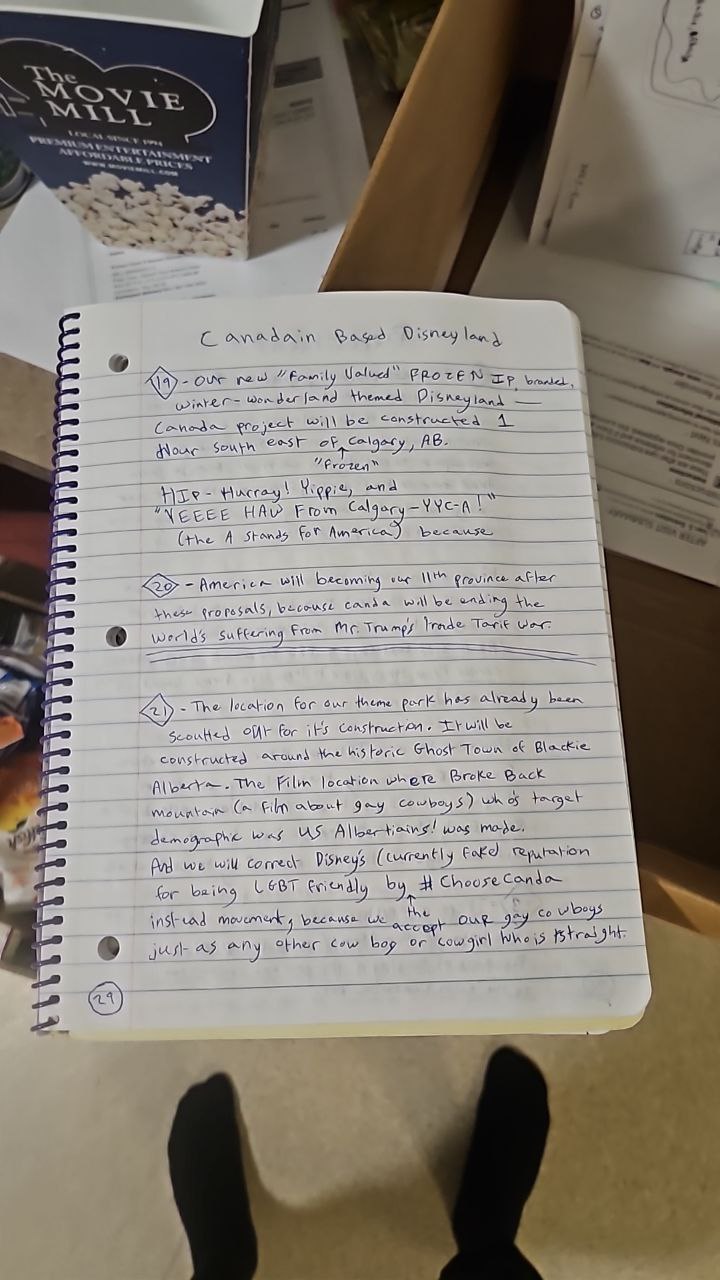 The
MOVIE
MILL
LOCAL SINCE 1994
PREMIUM ENTERTAINMENT
AFFORDABLE PRICES
WWW.MOVIEMILL.COM
Canadain Based Disneyland
19 - Our new "Family Valued" FROZEN IP, branded,
winter-wonderland themed Disneyland —
Canada project will be constructed 1
Hour south east of Calgary, AB.
"frozen"
HIP-Hurray! Yippie, and
"YEEEE HAW From Calgary-YYC-A!"
(the A stands for America) because
20 - America will becoming our 11th province after
these proposals, because canda will be ending the
world's suffering from Mr. Trump's trade Tarif war.
21 - The location for our theme park has already been
scoutted out for it's construction. It will be
constructed around the historic Ghost Town of Blackie
Alberta. The Film location where Broke Back
mountain (a film about gay cowboys) who's target
demographic was US Albertiains! was made.
And we will correct Disney's (currently fake) reputation
for being LGBT friendly by # Choose Canda
the
instead movement, because we accept our gay cowboys
just as any other cow boy or cowgirl who is straight.
29
AFTER VISIT SUMMARY